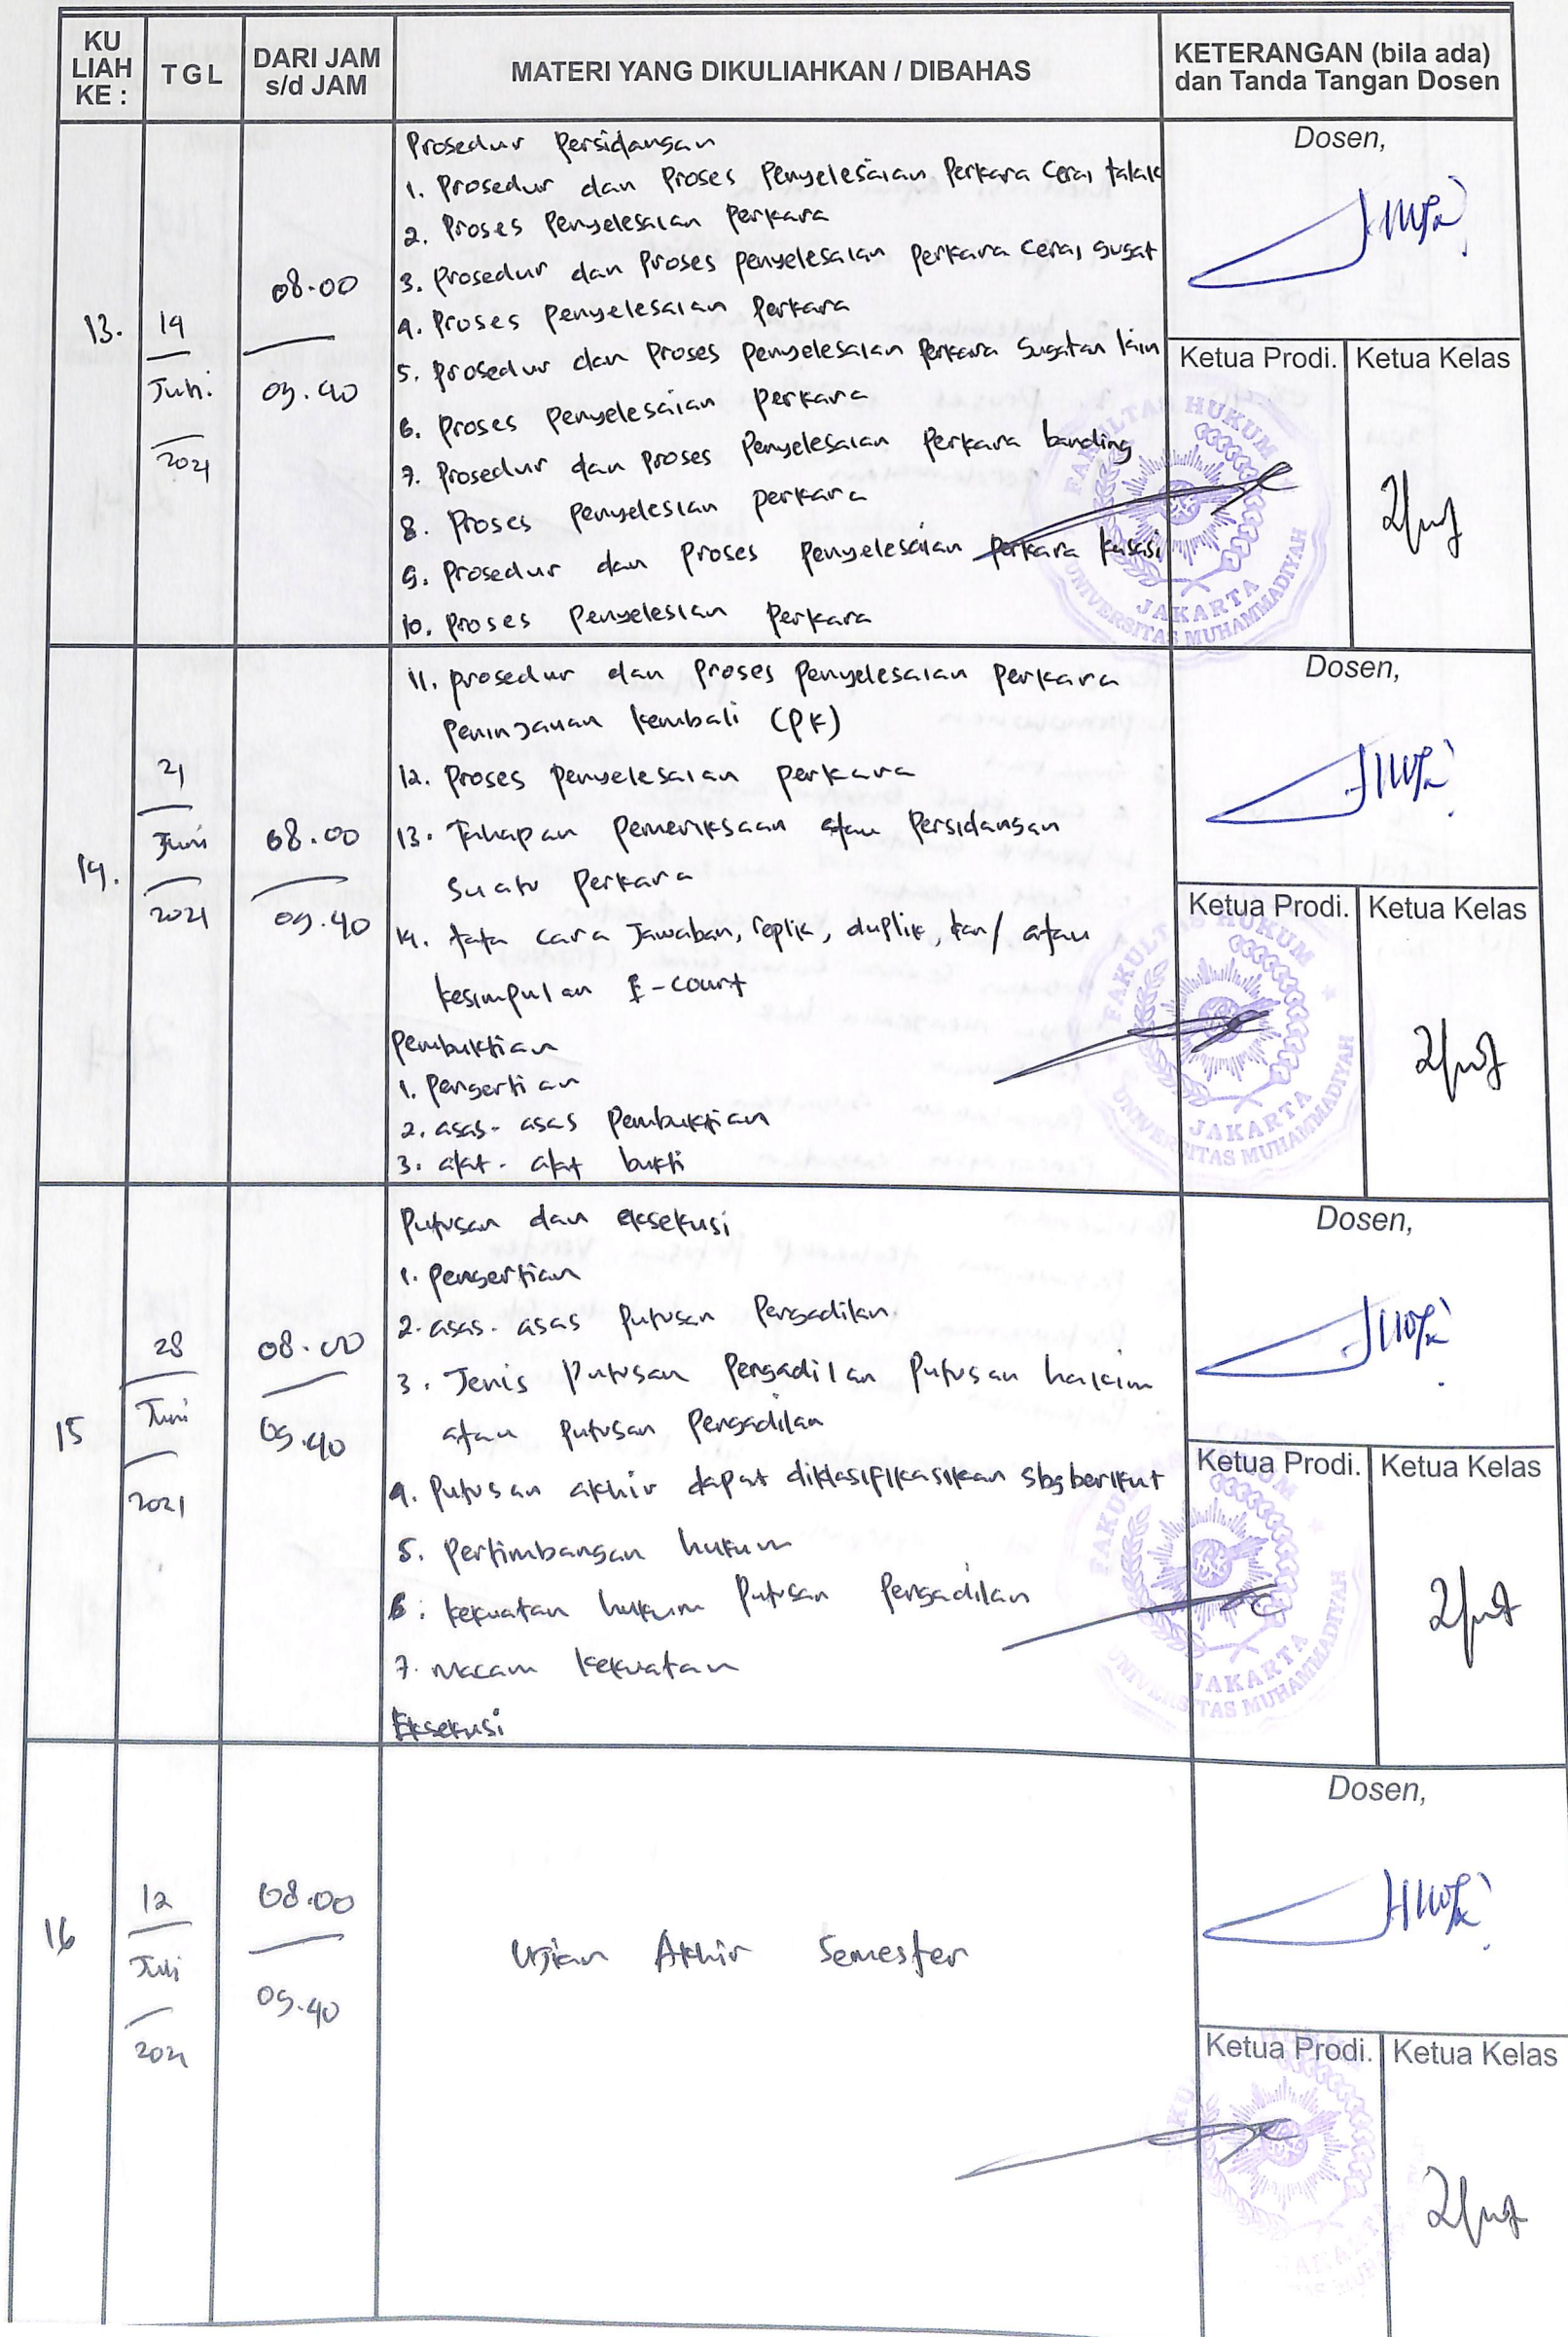 KU LIAH KE :
TGL
DARI JAM s/d JAM
MATERI YANG DIKULIAHKAN / DIBAHAS
KETERANGAN (bila ada) dan Tanda Tangan Dosen
13.
14
Juni
2021
08.00
09.40
Prosedur Persidangan
1. Prosedur dan Proses Penyelesaian Perkara Cerai talak
2. Proses Penyelesaian Perkara
3. Prosedur dan Proses penyelesaian perkara Cerai gugat
4. Proses penyelesaian Perkara
5. Prosedur dan Proses penyelesaian Perkara Gugatan lain
6. Proses Penyelesaian perkara
7. Prosedur dan Proses Penyelesaian Perkara banding
8. Proses penyelesian perkara
9. Prosedur dan Proses penyelesaian Perkara kasasi
10. Proses Penyelesian Perkara
Dosen,
Ketua Prodi.
Ketua Kelas
FAKULTAS HUKUM
UNIVERSITAS MUHAMMADIYAH
JAKARTA
14.
21
Juni
2021
08.00
09.40
11. prosedur dan Proses Penyelesaian Perkara
Peninjauan kembali (PK)
12. Proses penyelesaian perkara
13. Tahapan pemeriksaan atau Persidangan
Suatu Perkara
14. tata cara Jawaban, replik, duplik, dan/ atau
kesimpulan E-court
Pembuktian
1. Pengertian
2. asas-asas Pembuktian
3. alat-alat bukti
Dosen,
Ketua Prodi.
Ketua Kelas
FAKULTAS HUKUM
UNIVERSITAS MUHAMMADIYAH
JAKARTA
15
28
Juni
2021
08.00
09.40
Putusan dan eksekusi
1. Pengertian
2. asas-asas Putusan Pengadilan.
3. Jenis Putusan Pengadilan Putusan hakim
atau Putusan Pengadilan
4. Putusan akhir dapat diklasifikasikan sbg berikut
5. Pertimbangan hukum
6. kekuatan hukum Putusan Pengadilan
7. Macam kekuatan
Eksekusi
Dosen,
Ketua Prodi.
Ketua Kelas
FAKULTAS HUKUM
UNIVERSITAS MUHAMMADIYAH
JAKARTA
16
12
Juli
2021
08.00
09.40
Ujian Akhir Semester
Dosen,
Ketua Prodi.
Ketua Kelas